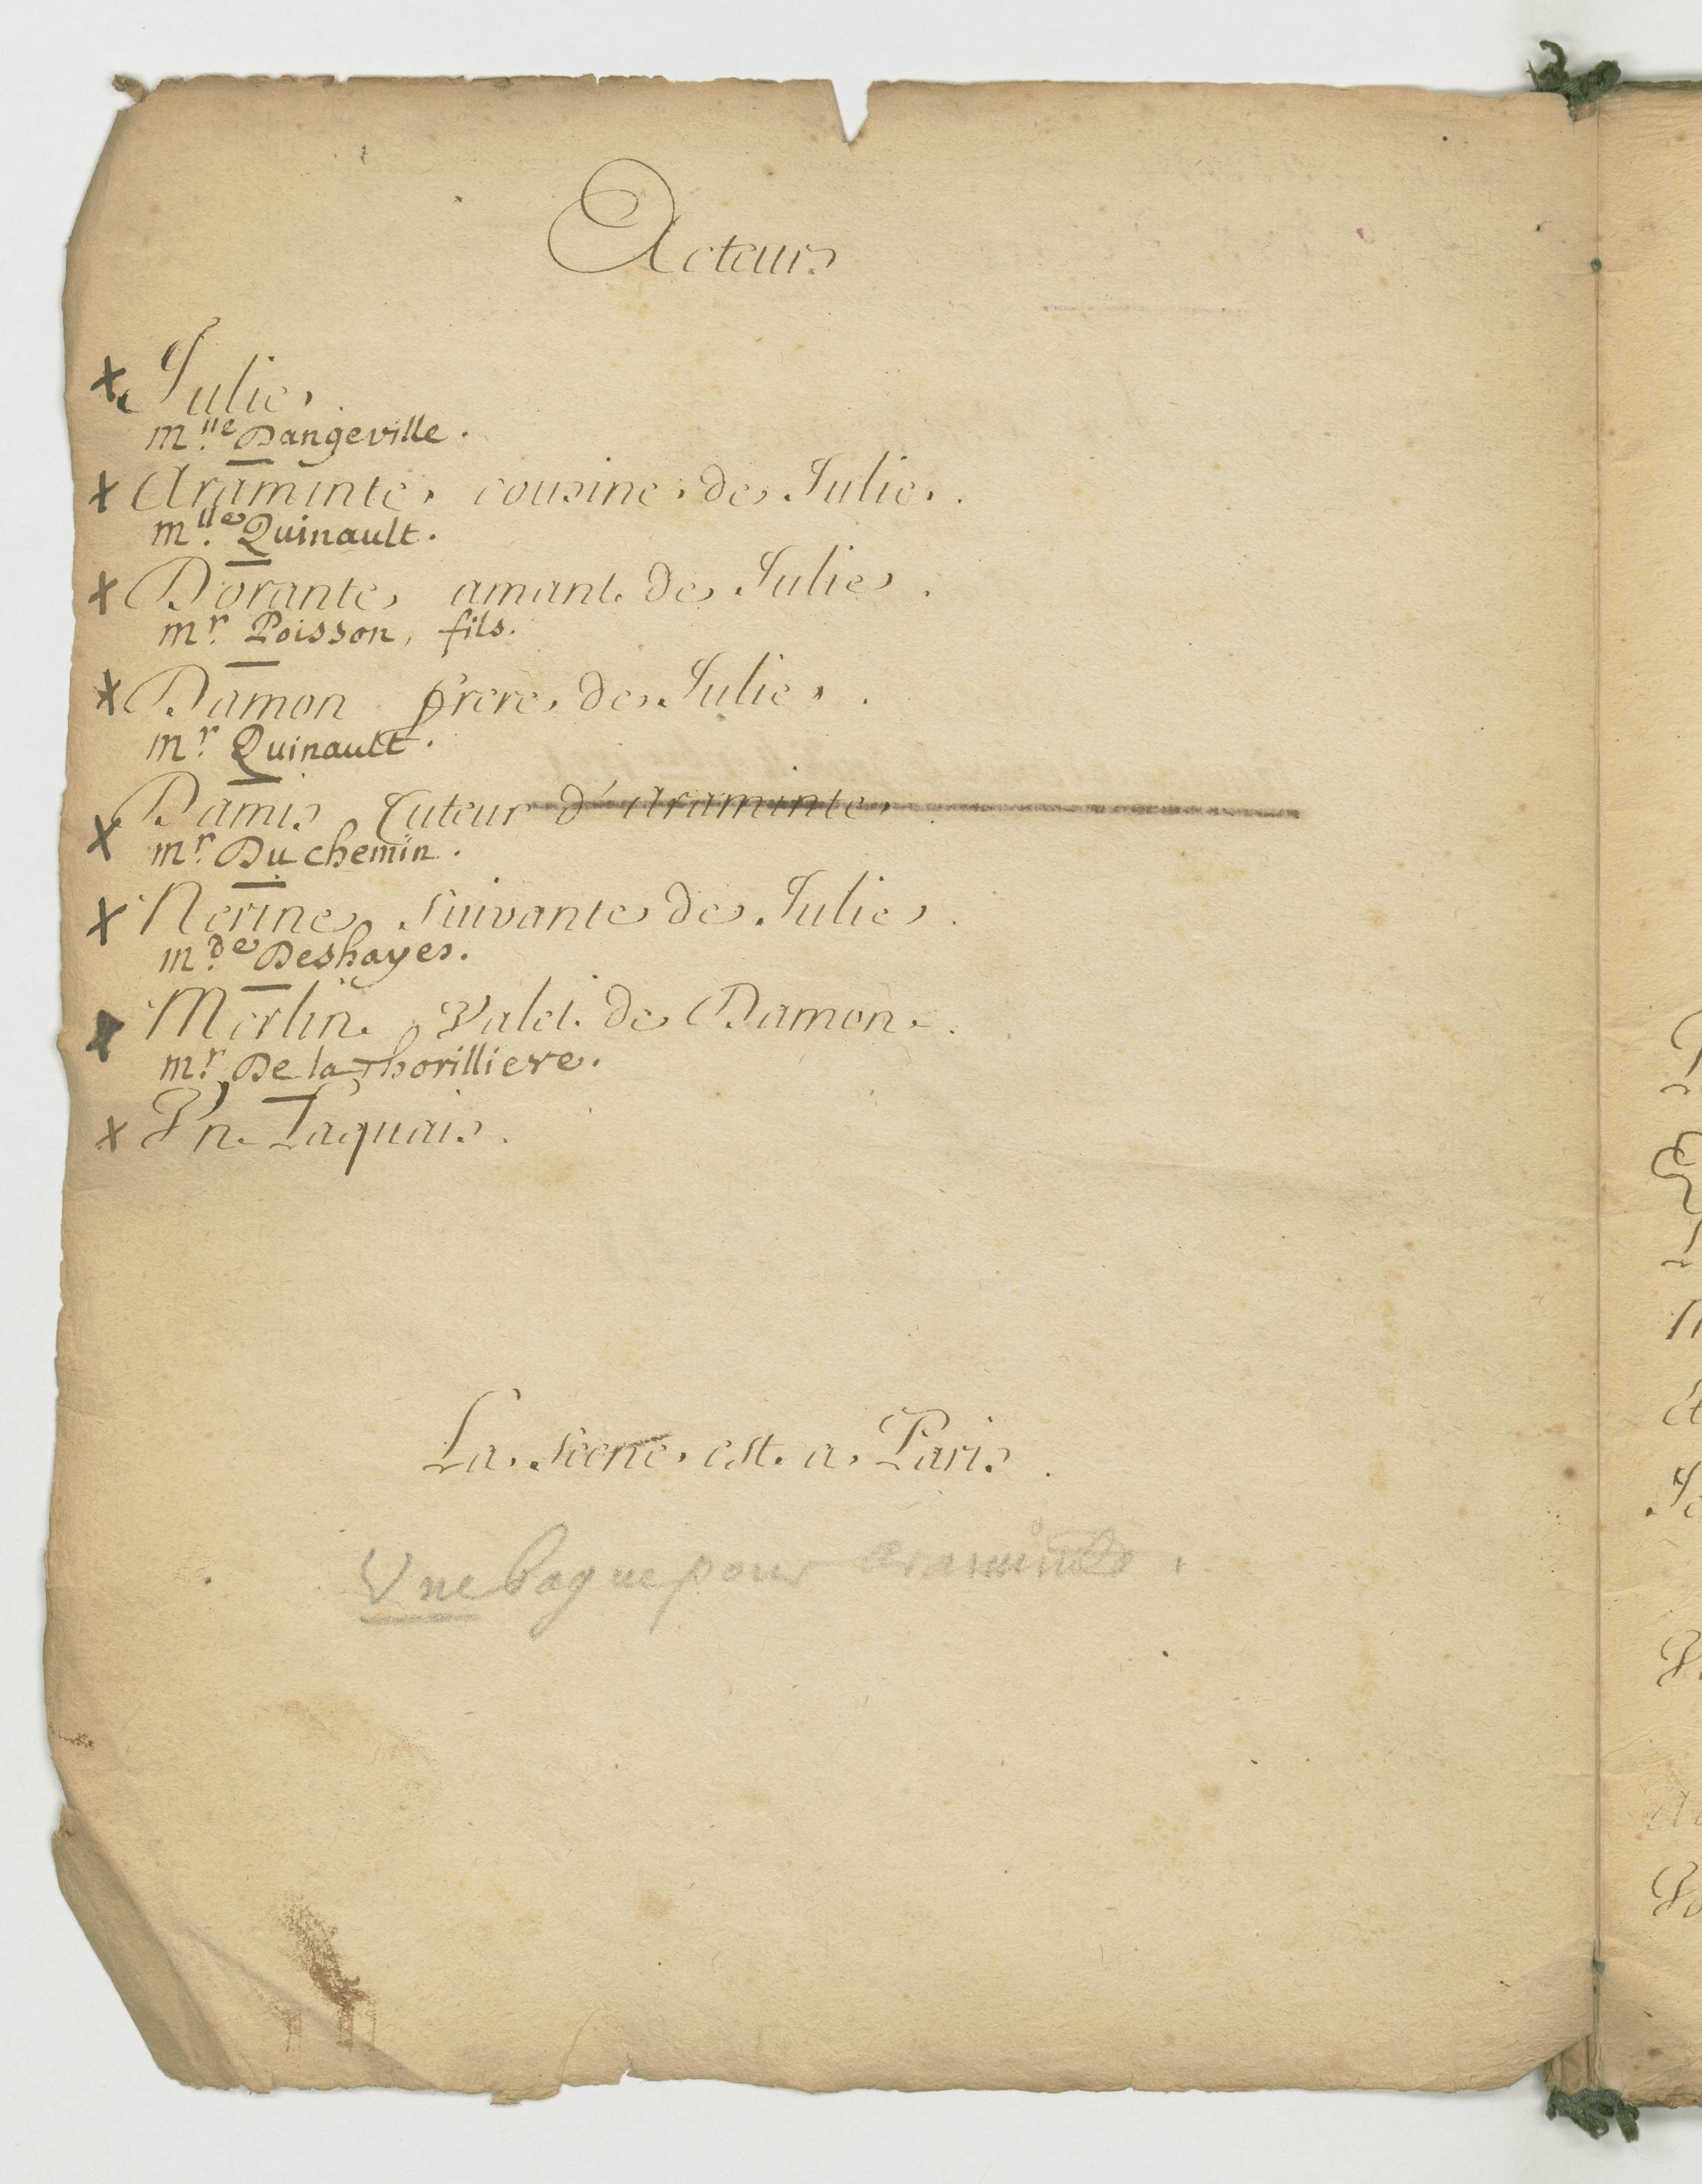 Acteurs
x Julie.
m.lle Dangeville.
x Araminte, cousine de Julie.
m.lle Quinault.
x Dorante, amant de Julie.
m.r Poisson, fils.
x Damon frere de Julie.
m.r Quinault.
x Damis Tuteur d'Araminte.
m.r Du chemin.
x Nerine, suivante de Julie.
m.de Deshayes.
x Merlin, Valet de Damon.
m.r De la Thorilliere.
x Vn Laquais.
La scene est a Paris.
Vne bague pour araminte.